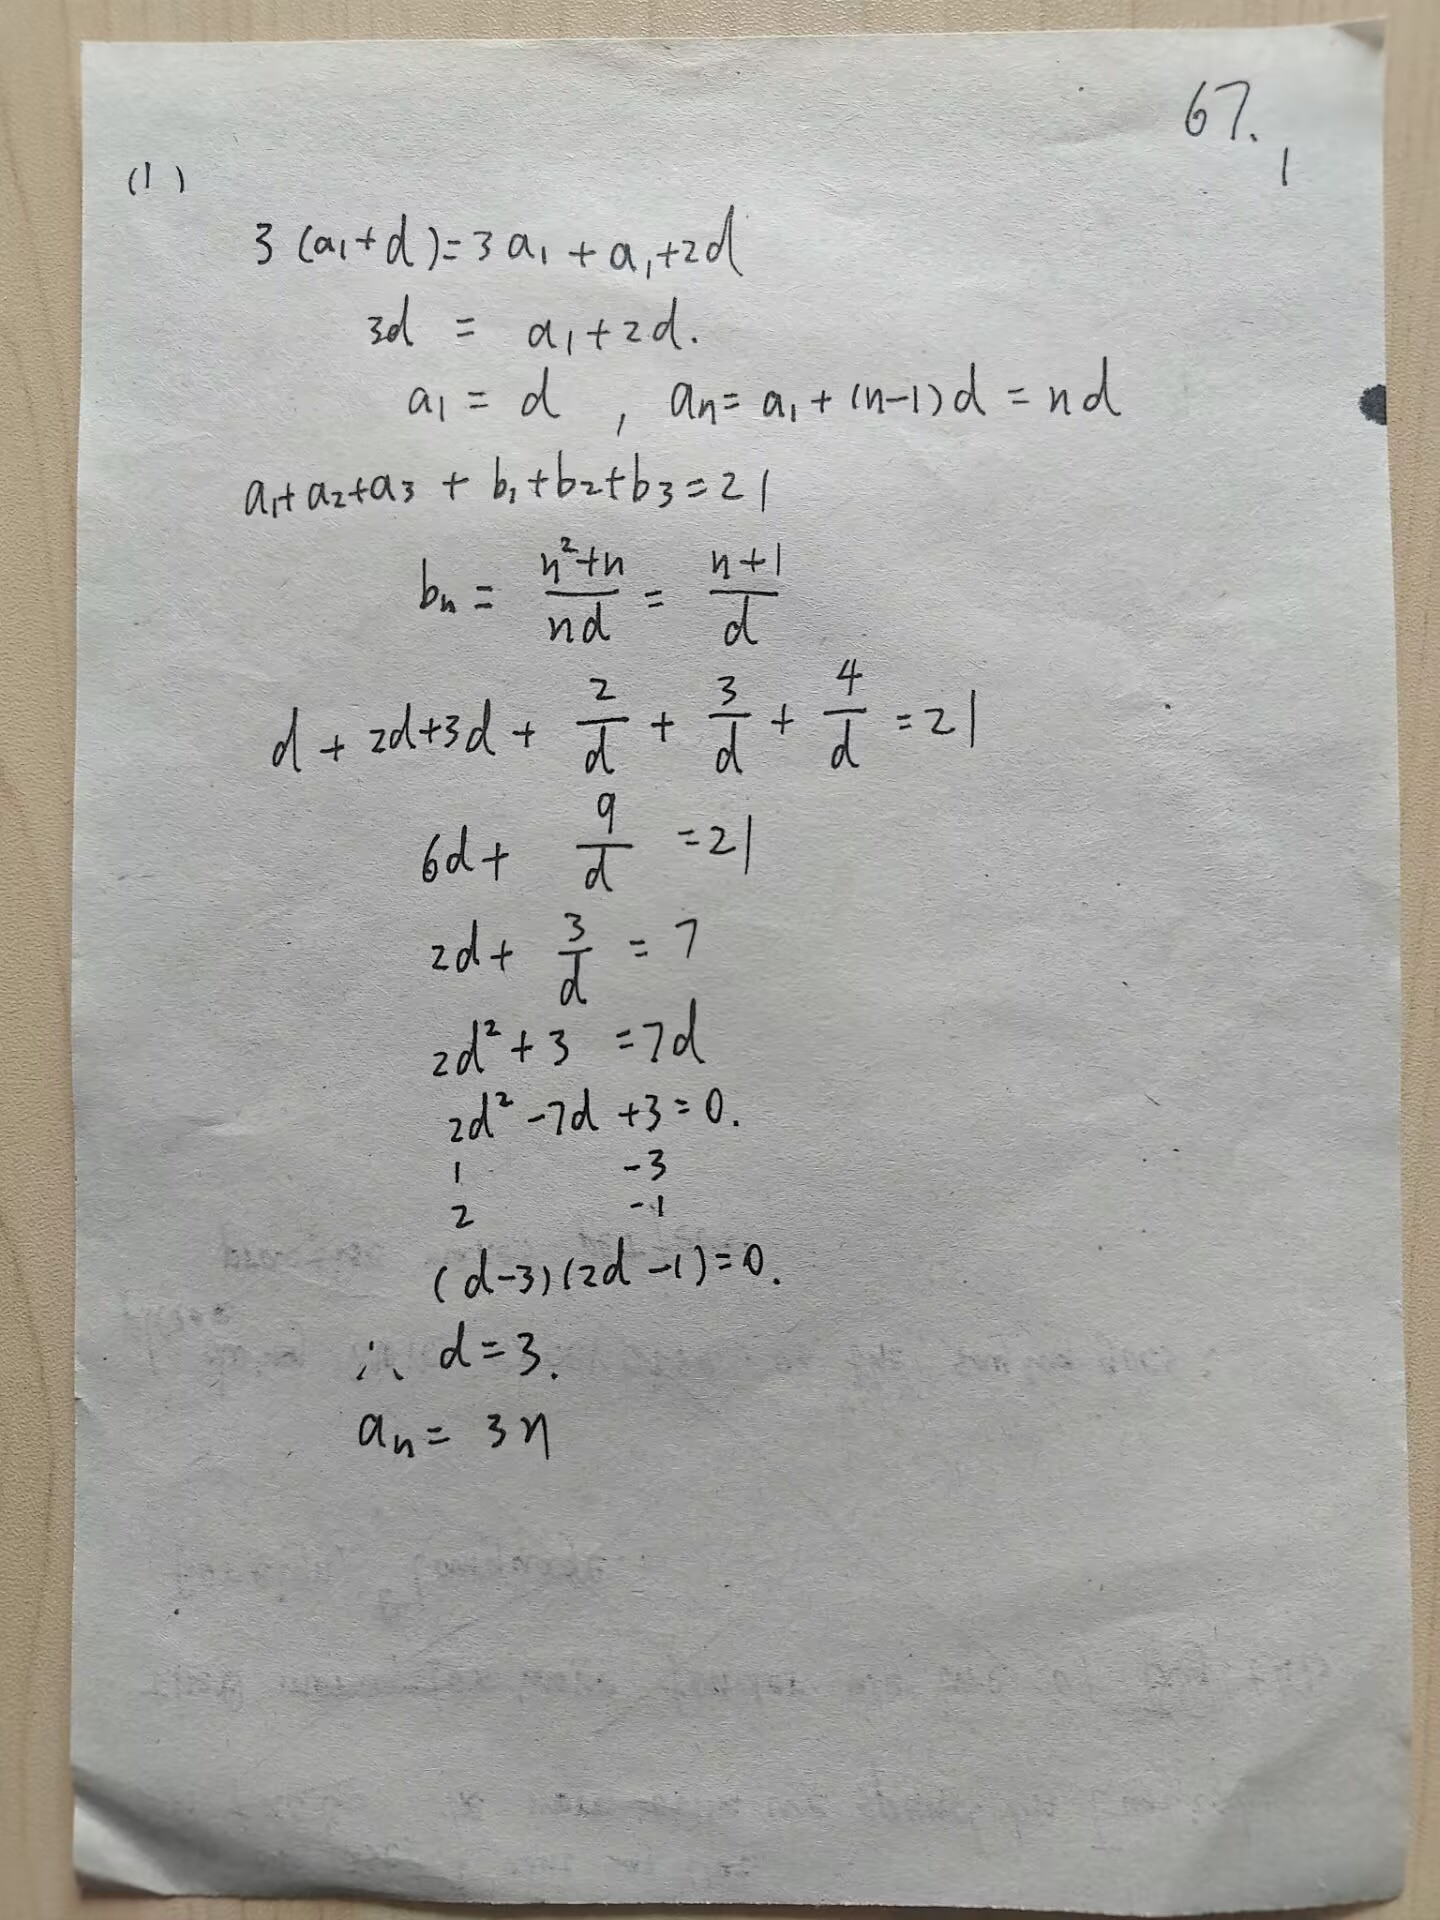 67.
1
(1)
3(a₁+d)=3a₁+a₁+2d
3d = a₁+2d.
a₁ = d , aₙ= a₁+(n-1)d = nd
a₁+a₂+a₃ + b₁+b₂+b₃=21
bₙ = \frac{n²+n}{nd} = \frac{n+1}{d}
d + 2d+3d + \frac{2}{d} + \frac{3}{d} + \frac{4}{d} =21
6d+ \frac{9}{d} =21
2d+ \frac{3}{d} = 7
2d²+3 =7d
2d²-7d+3=0.
1 -3
2 -1
(d-3)(2d-1)=0.
∴ d=3.
aₙ= 3n